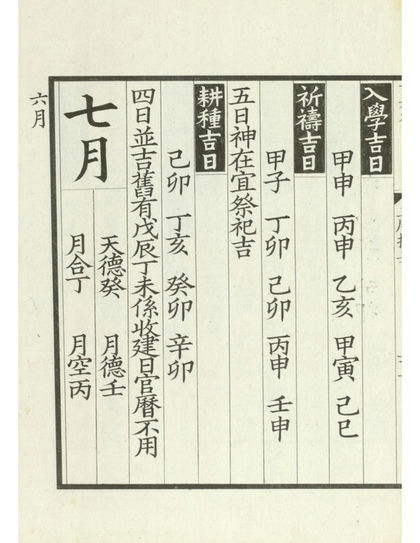 入學吉日
甲申 丙申 乙亥 甲寅 己巳
祈禱吉日
甲子 丁卯 己卯 丙申 壬申
五日神在宜祭祀吉
耕種吉日
己卯 丁亥 癸卯 辛卯
四日並吉舊有戊辰丁未係收建日官曆不用
七月
天德癸 月德壬
月合丁 月空丙
六月